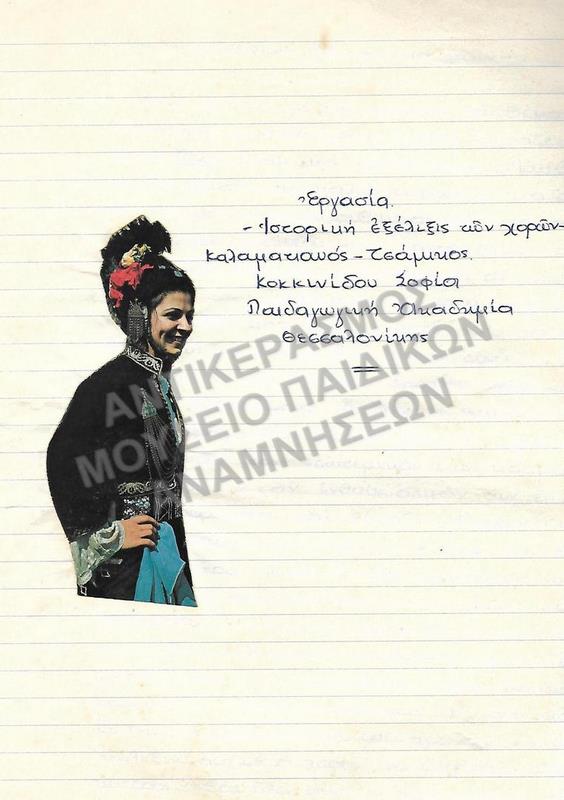 Ἐργασία.
- Ἱστορική ἐξέλιξις τῶν χορῶν -
Καλαματιανός - Τσάμικος.
Κοκκινίδου Σοφία
Παιδαγωγική Ἀκαδημία
Θεσσαλονίκης
ΑΝΤΙΚΕΡΑΣΜΟΣ
ΜΟΥΣΕΙΟ ΠΑΙΔΙΚΩΝ
ΑΝΑΜΝΗΣΕΩΝ